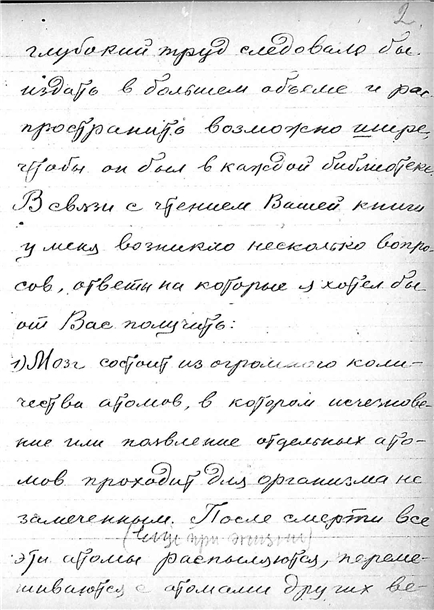 2.
глубокий труд следовало бы
издать в большем объеме и рас-
пространить возможно шире,
чтобы он был в каждой библиотеке.
В связи с чтением Вашей книги
у меня возникло несколько вопро-
сов, ответы на которые я хотел бы
от Вас получить:
1) Мозг состоит из огромного коли-
чества атомов, в котором исчезнове-
ние или появление отдельных ато-
мов проходит для организма не
замеченным. После смерти все
(еще при жизни)
эти атомы распыляются, переме-
шиваются с атомами других ве-